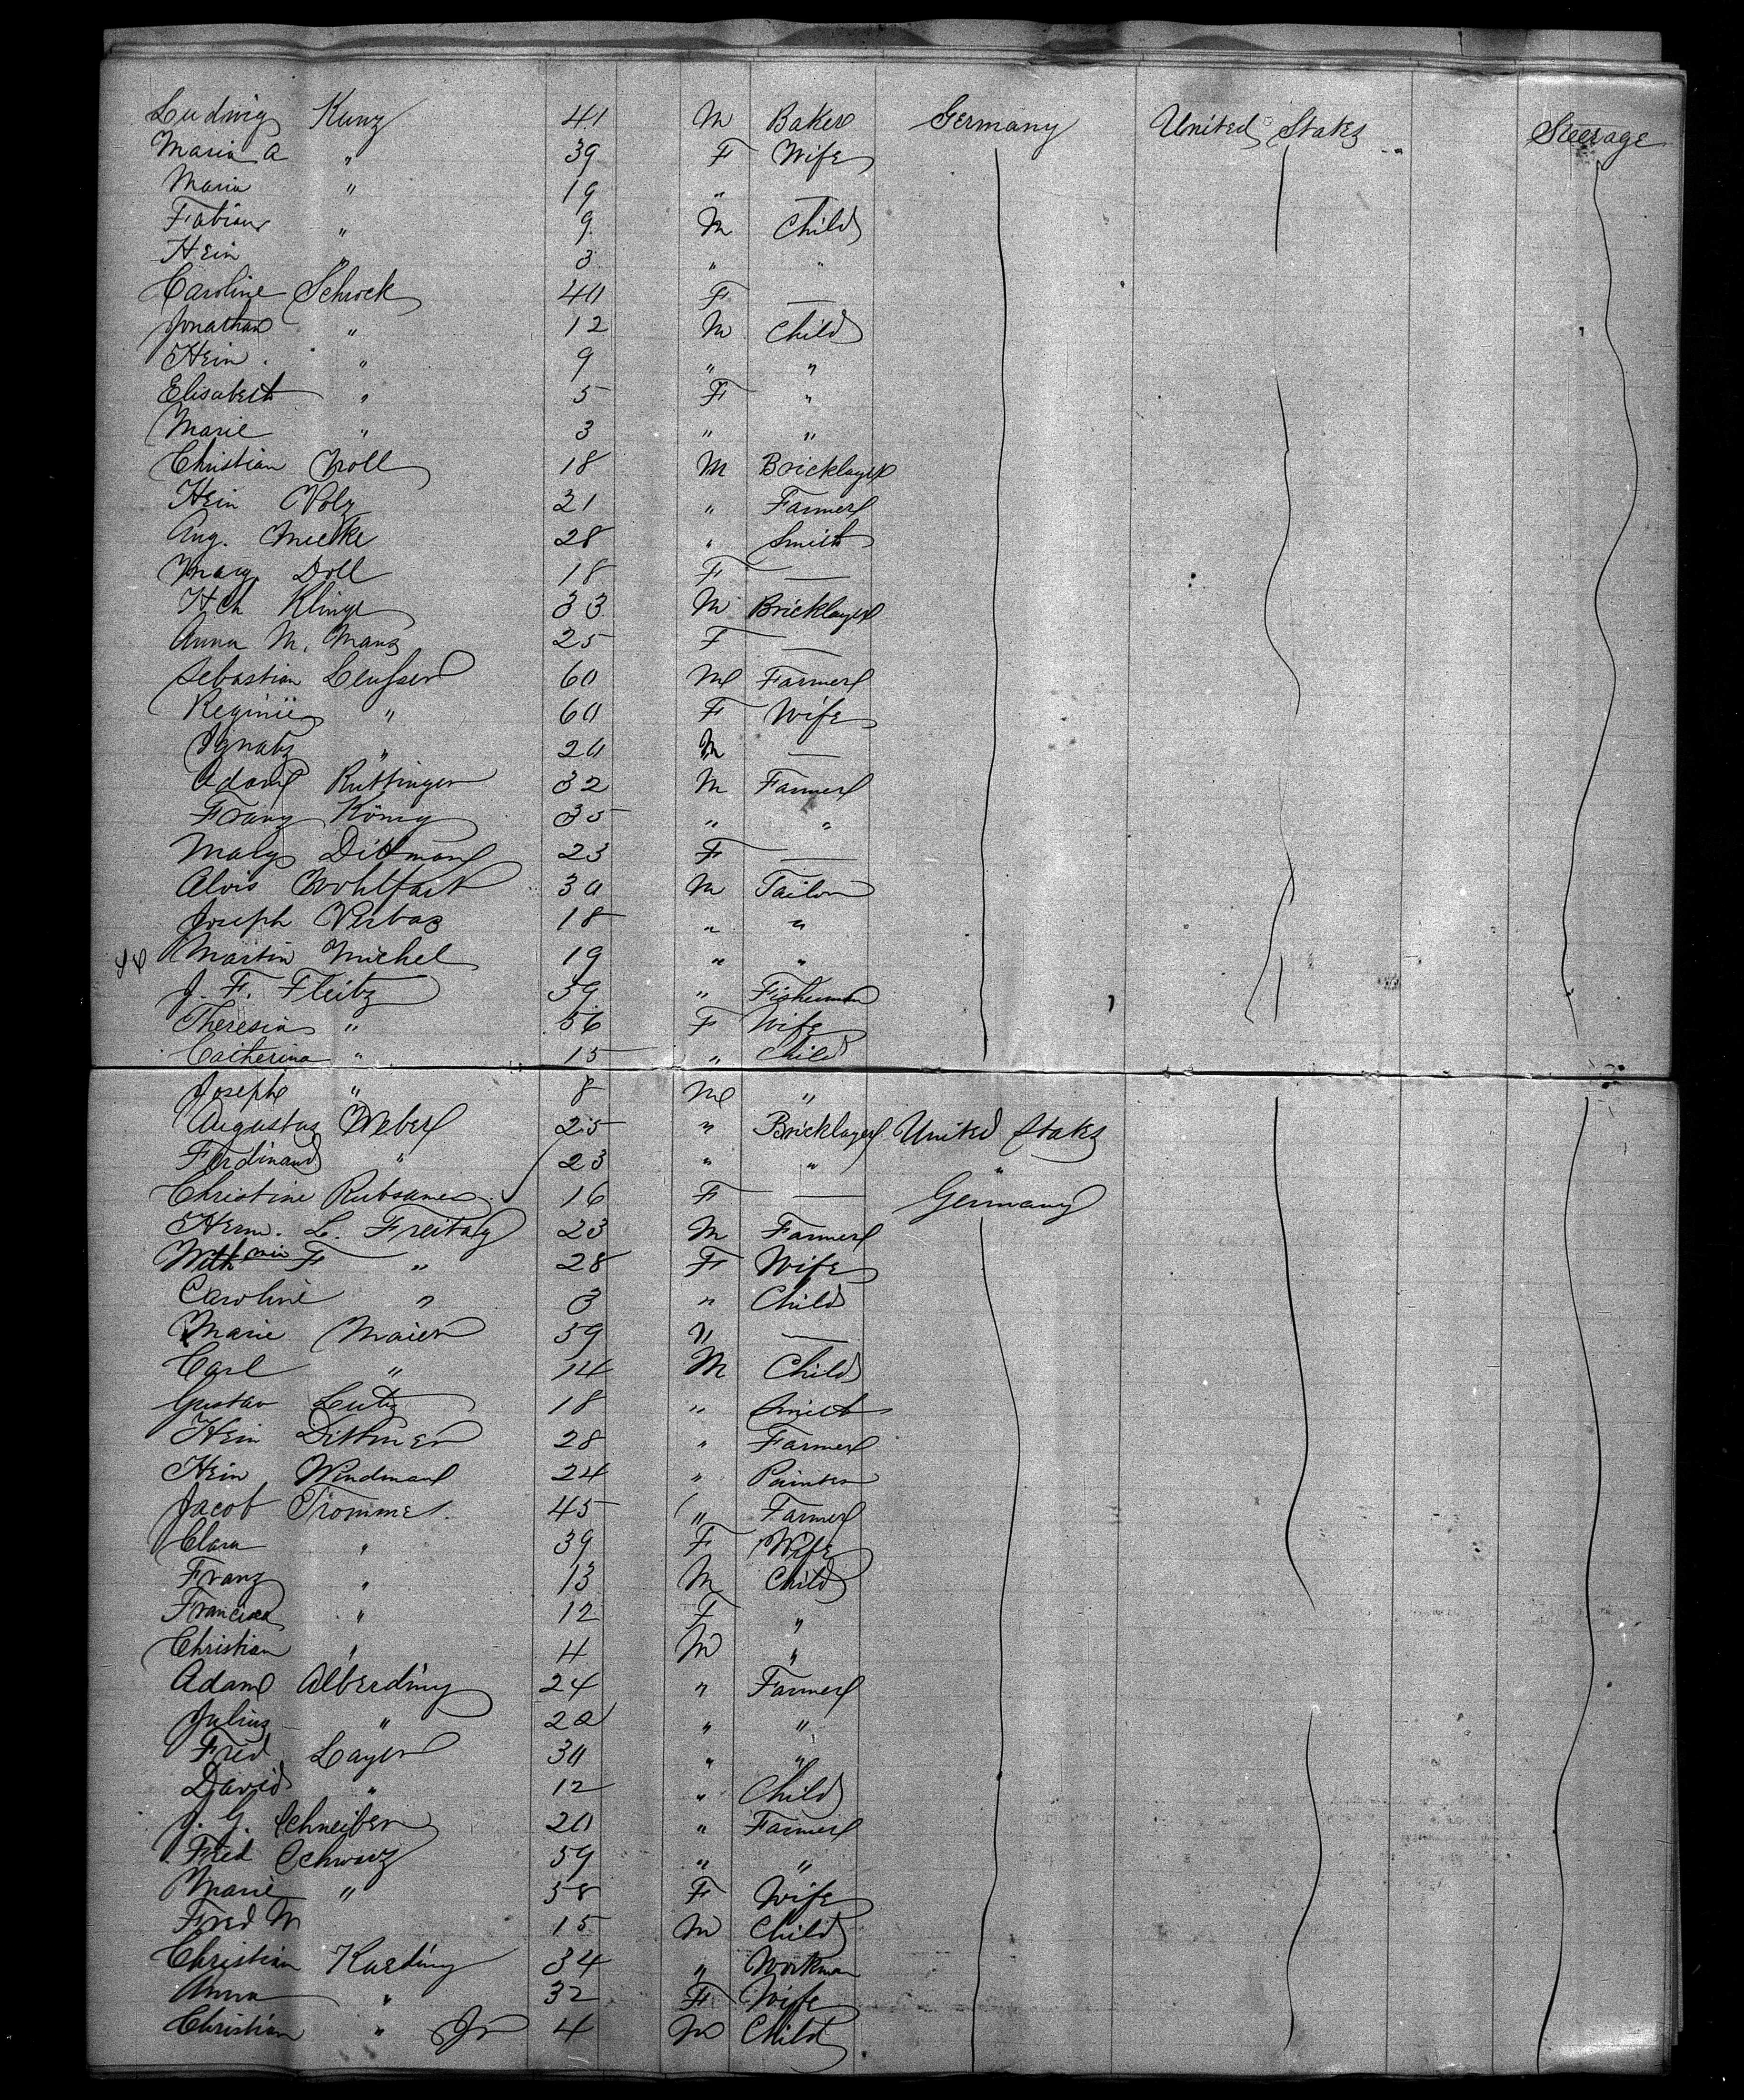 Ludwig Kunz 41 M Baker Germany United States Steerage
Maria A " 39 F Wife
Maria " 19 " —
Fabian " 9 M Child
Hein " 3 " "
Caroline Schrock 40 F —
Jonathan " 12 M Child
Hein " 9 " "
Elisabeth " 5 F "
Marie " 3 " "
Christian Noll 18 M Bricklayer
Hein Volz 21 " Farmer
Aug. Mielke 28 " Smith
Marg. Doll 18 F —
Hch Klinge 33 M Bricklayer
Anna M. Manz 25 F —
Sebastian 60 M Farmer
" 60 F Wife
Ignatz " 20 M —
Adam Ruttinger 32 M Farmer
Franz König 35 " "
Dittmann 23 F —
Alois Wohlfart 30 M Tailor
Joseph 18 " "
Martin Michel 19 " "
J. F. Fleitz 59 " Fisherman
Theresia " 56 F Wife
Catherina " 15 " Child
Joseph " 8 M "
Augustus Weber 25 " Bricklayer United States
Ferdinand " 23 " " "
Christine Rubsamen 16 F — Germany
Herm. L. Freitag 23 M Farmer
F " 28 F Wife
Caroline " 3 " Child
Marie Maier 59 " —
Carl " 14 M Child
Gustav Lutz 18 " Smith
Hein Dittmer 28 " Farmer
Hein Windmann 24 " Painter
Jacob Trommer 45 " Farmer
Clara " 39 F Wife
Franz " 13 M Child
Francisca " 12 F "
Christian " 4 M "
Adam Alberding 24 " Farmer
Julius " 20 " "
Fred. Layer 30 " "
David " 12 " Child
J. G. Schneiber 20 " Farmer
Fried Schwarz 59 " "
Marie " 58 F Wife
Fred W 15 M Child
Christian Harding 34 " Workman
Anna " 32 F Wife
Christian " Jr 4 M Child